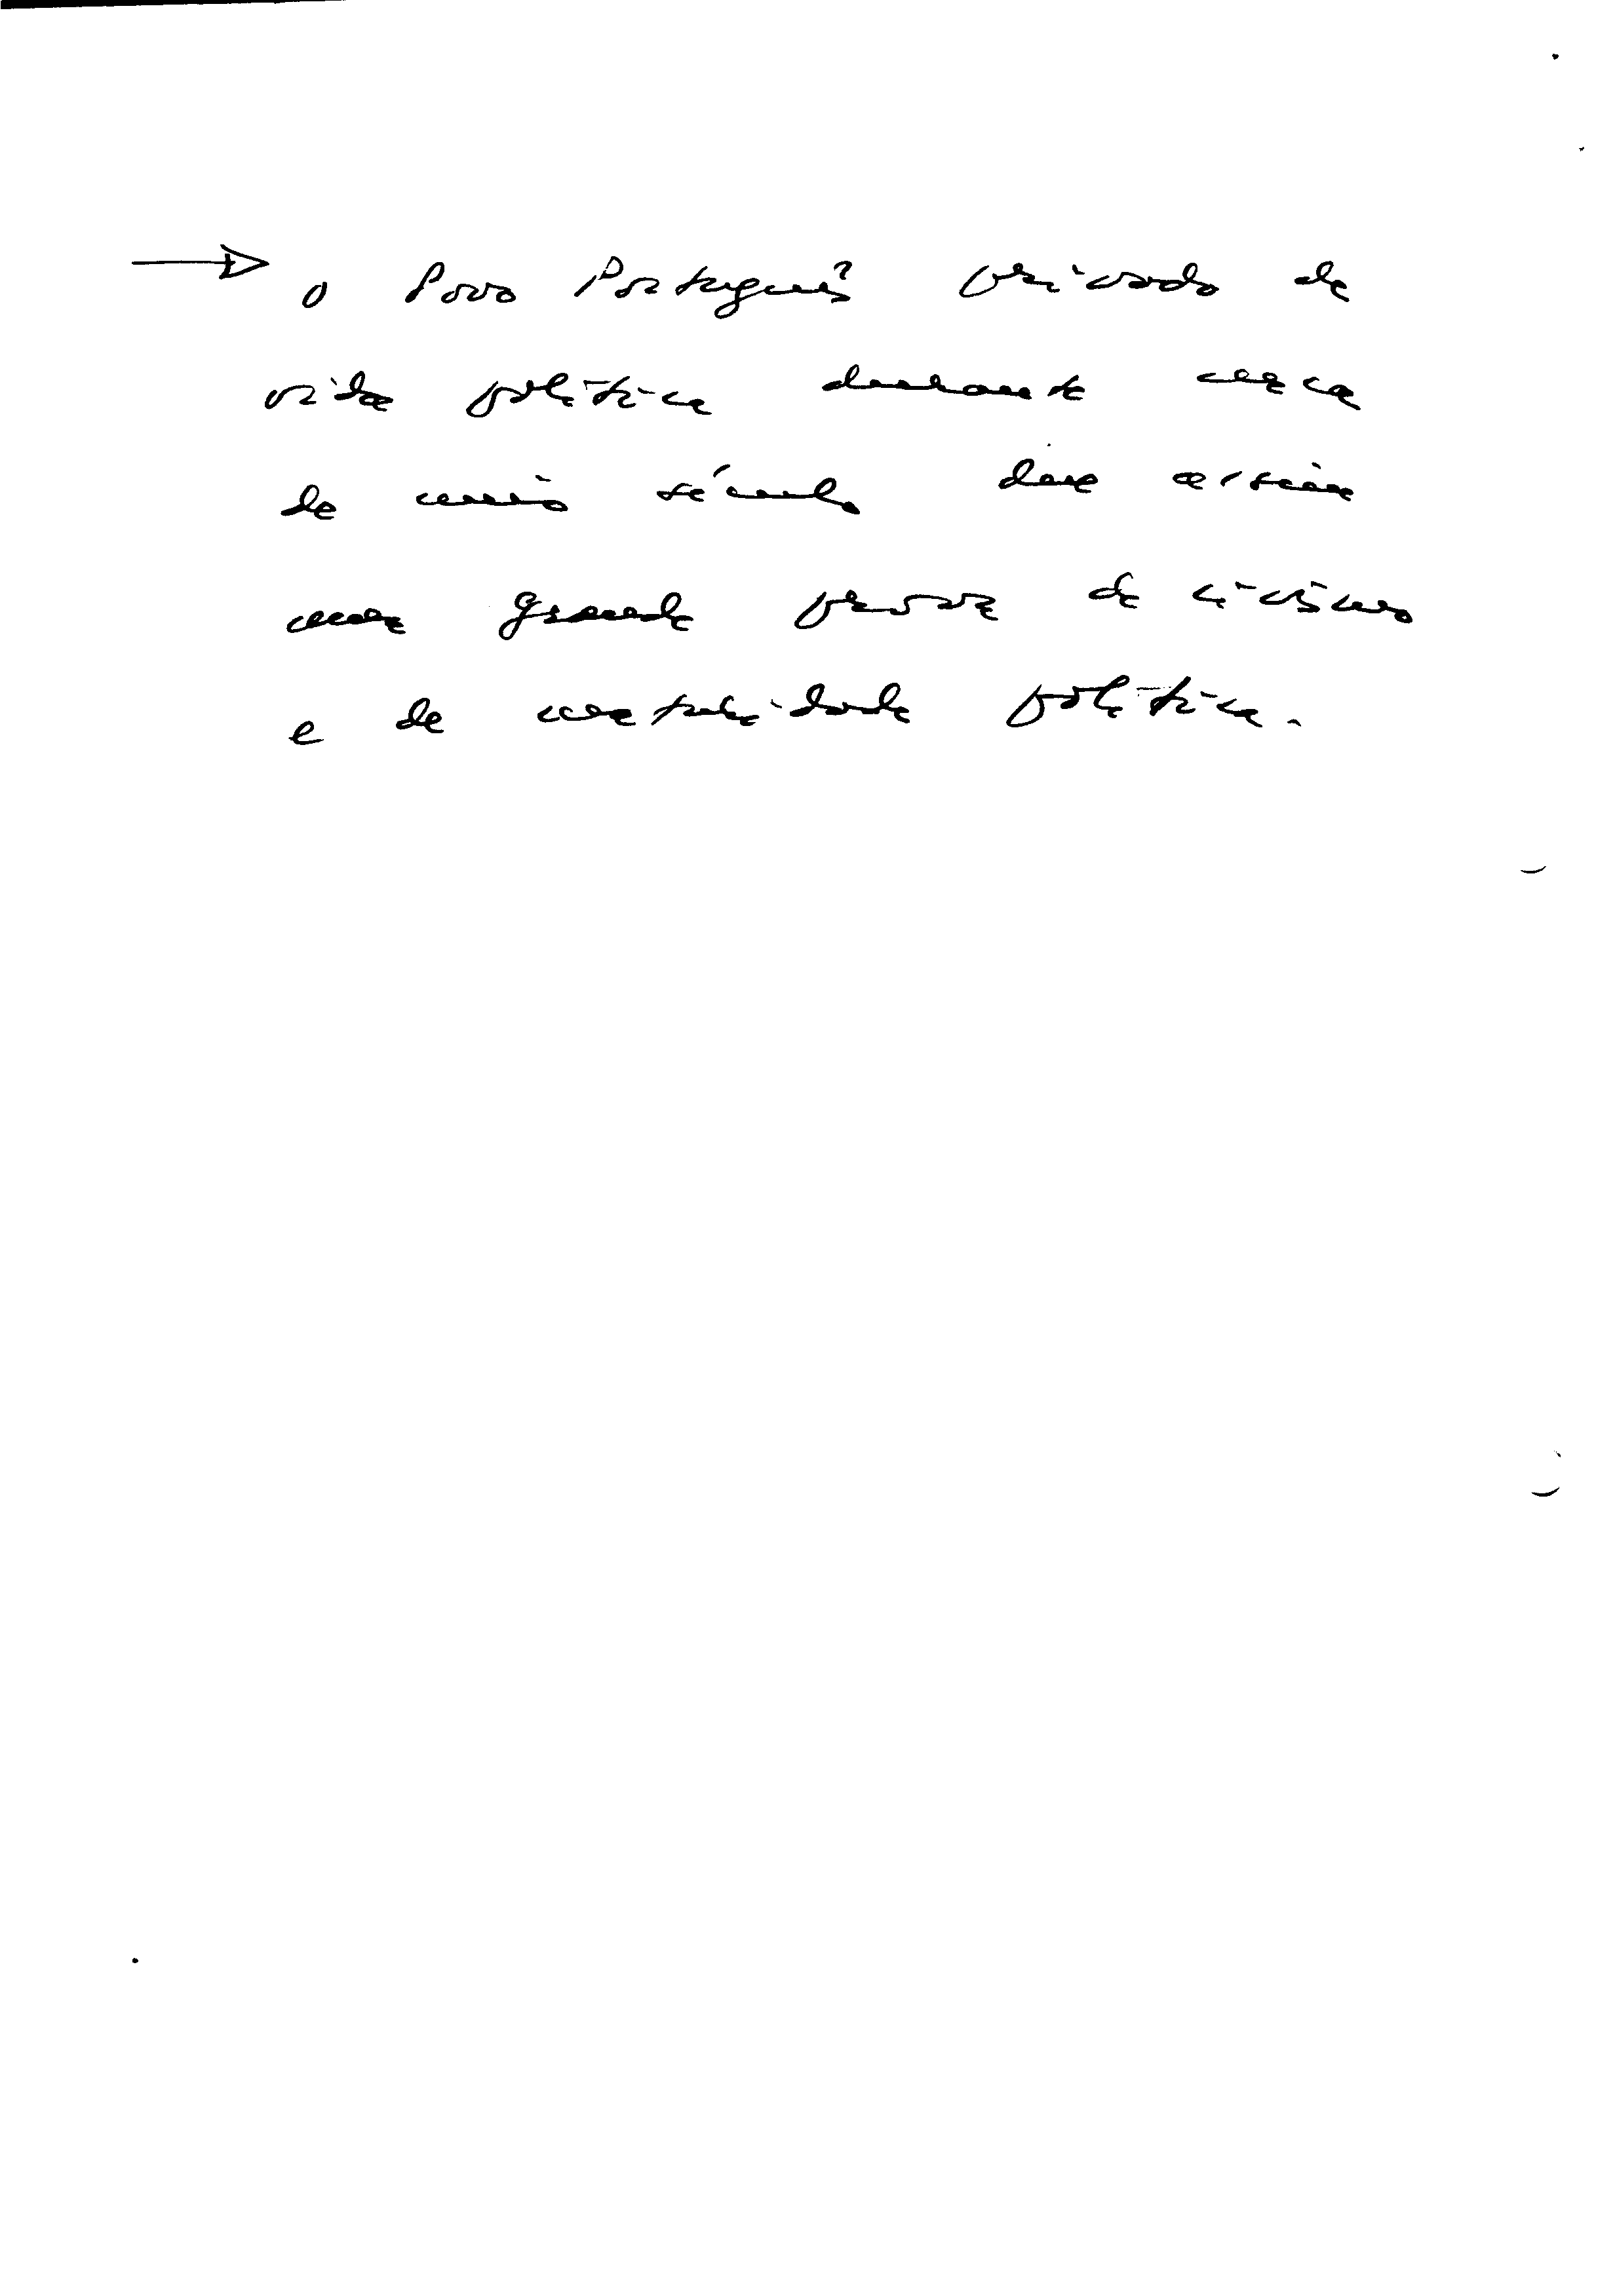 → O Povo Português privado de
vida política durante cerca
de meio século deu assim
uma grande prova de civismo
e de maturidade política.